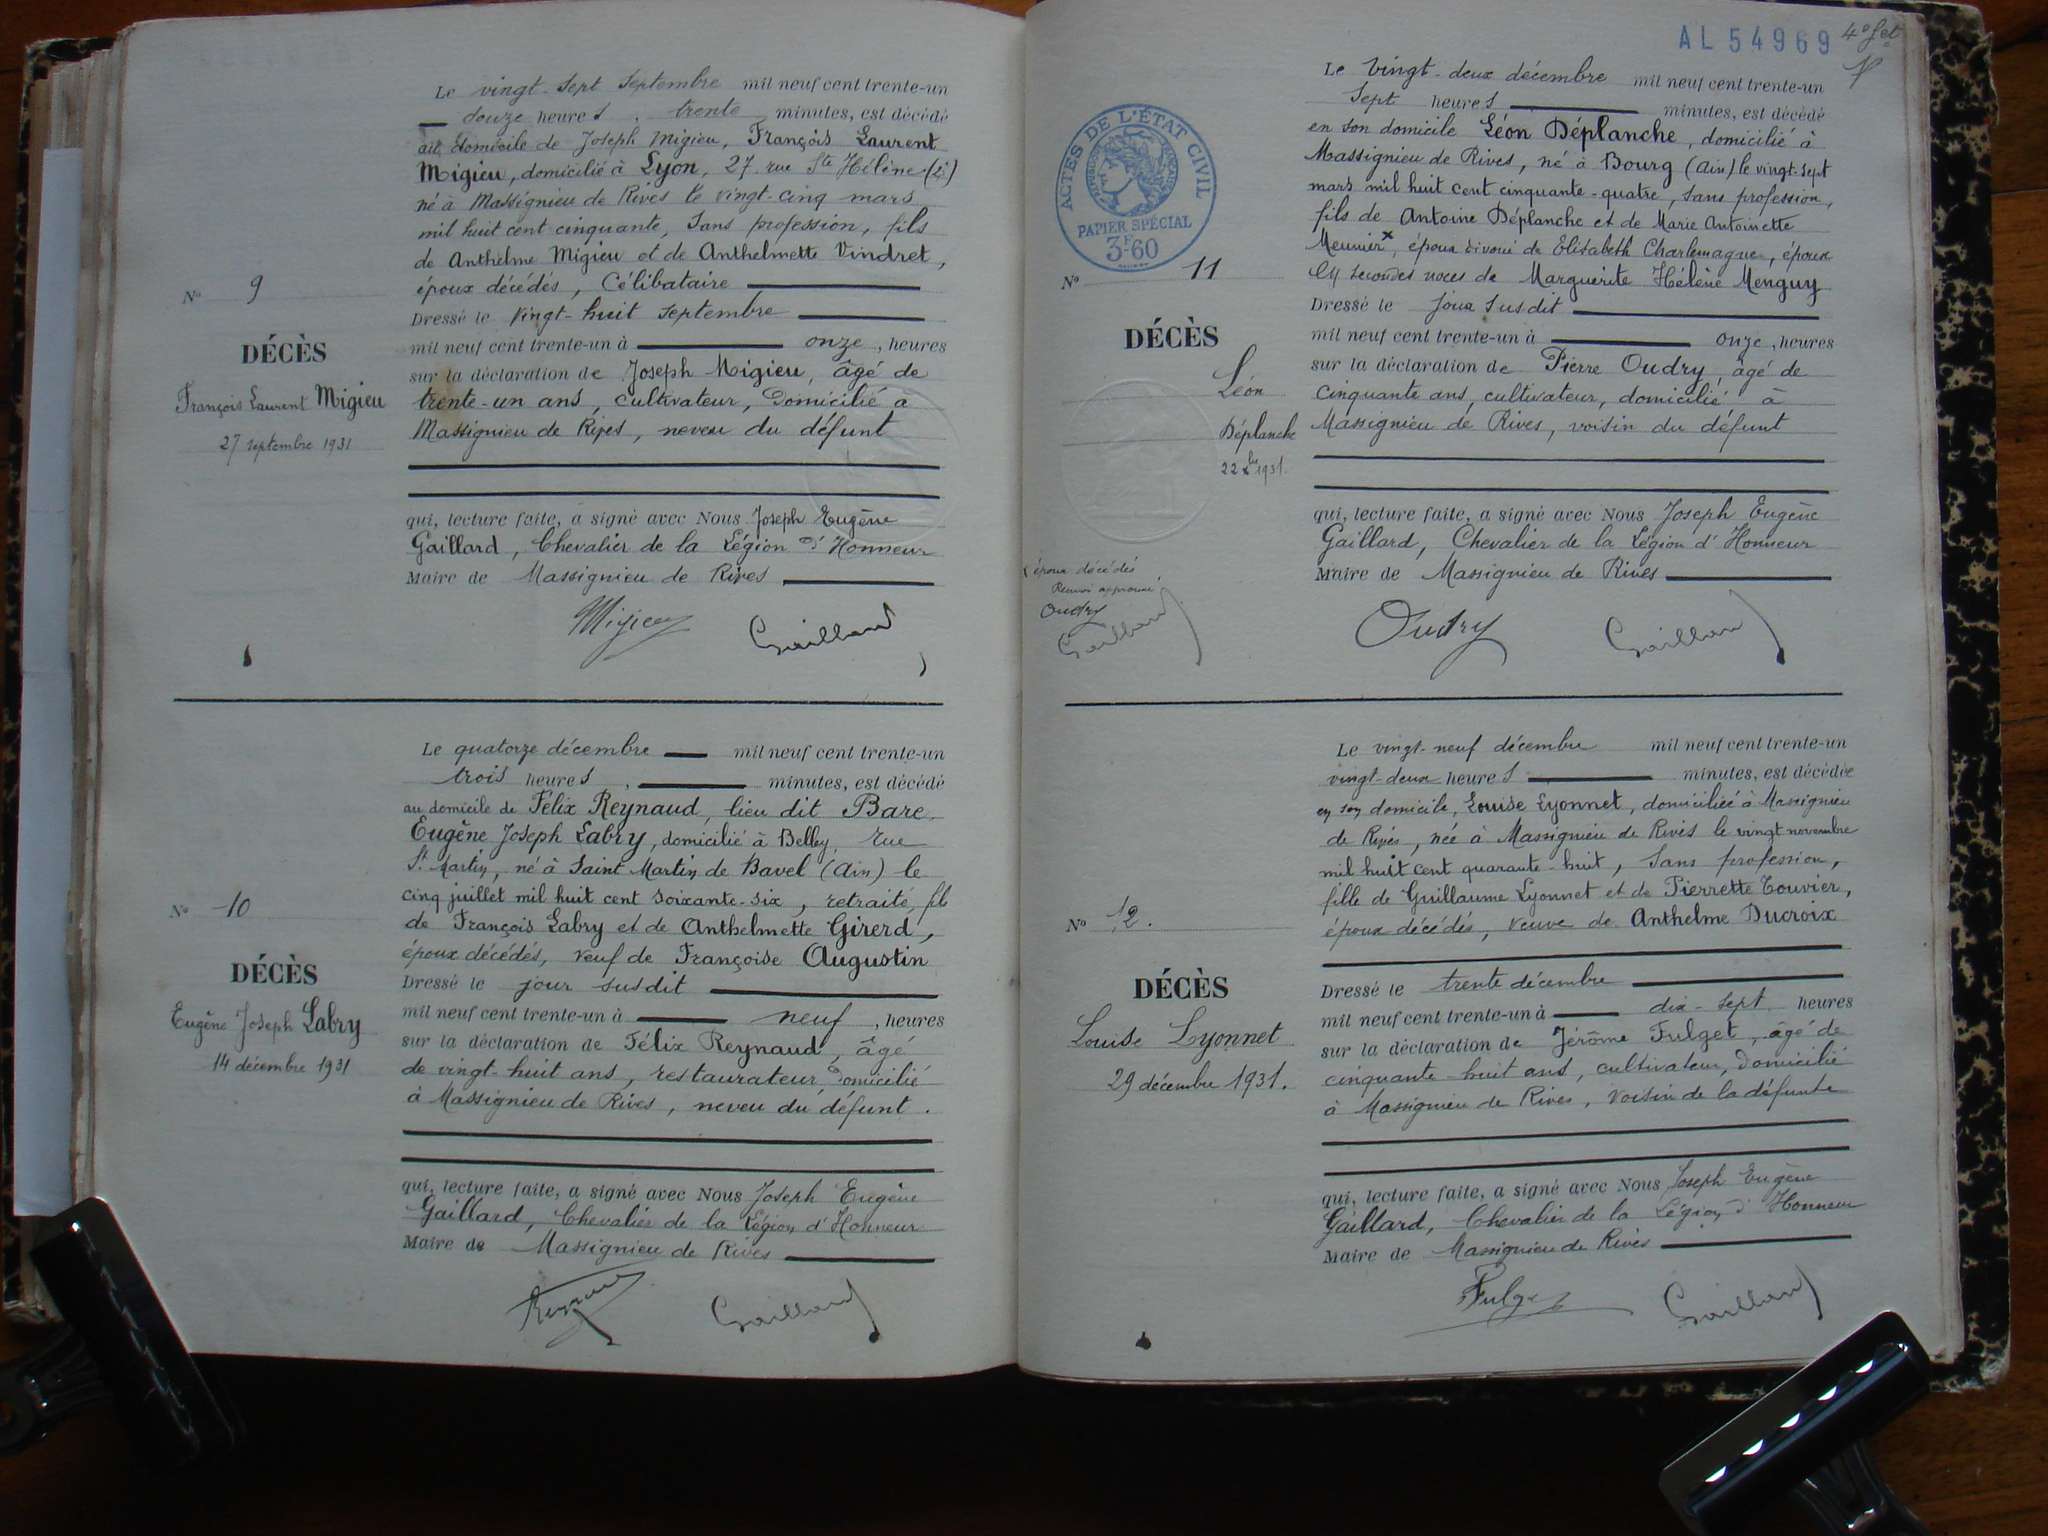 Le vingt-sept septembre mil neuf cent trente-un
douze heures, trente minutes, est décédé
au domicile de Joseph Migieu, François Laurent
Migieu, domicilié à Lyon, 27 rue Ste Hélène (2e)
né à Massignieu de Rives le vingt-cinq mars
mil huit cent cinquante, sans profession, fils
de Anthelme Migieu et de Anthelmette Vindret,
époux décédés, Célibataire
Dressé le vingt-huit septembre
mil neuf cent trente-un à onze, heures
sur la déclaration de Joseph Migieu, âgé de
trente-un ans, cultivateur, domicilié à
Massignieu de Rives, neveu du défunt
qui, lecture faite, a signé avec Nous Joseph Eugène
Gaillard, Chevalier de la Légion d'Honneur
Maire de Massignieu de Rives
Migieu Gaillard
No 9
DÉCÈS
François Laurent Migieu
27 septembre 1931
Le quatorze décembre mil neuf cent trente-un
trois heures, minutes, est décédé
au domicile de Félix Reynaud, lieu dit Bare,
Eugène Joseph Labry, domicilié à Belley, rue
St Martin, né à Saint Martin de Bavel (Ain) le
cinq juillet mil huit cent soixante-six, retraité, fils
de François Labry et de Anthelmette Girerd,
époux décédés, veuf de Françoise Augustin
Dressé le jour susdit
mil neuf cent trente-un à neuf, heures
sur la déclaration de Félix Reynaud, âgé
de vingt-huit ans, restaurateur, domicilié
à Massignieu de Rives, neveu du défunt.
qui, lecture faite, a signé avec Nous Joseph Eugène
Gaillard, Chevalier de la Légion d'Honneur
Maire de Massignieu de Rives
Reynaud Gaillard
No 10
DÉCÈS
Eugène Joseph Labry
14 décembre 1931
AL 54969
ACTES DE L'ÉTAT CIVIL
PAPIER SPÉCIAL
3F60
Le vingt-deux décembre mil neuf cent trente-un
sept heures minutes, est décédé
en son domicile Léon Déplanche, domicilié à
Massignieu de Rives, né à Bourg (Ain) le vingt-sept
mars mil huit cent cinquante-quatre, sans profession,
fils de Antoine Déplanche et de Marie Antoinette
Meunier x, époux divorcé de Elisabeth Charlemagne, époux
en secondes noces de Marguerite Hélène Menguy
Dressé le jour susdit
mil neuf cent trente-un à onze, heures
sur la déclaration de Pierre Oudry, âgé de
cinquante ans, cultivateur, domicilié à
Massignieu de Rives, voisin du défunt
qui, lecture faite, a signé avec Nous Joseph Eugène
Gaillard, Chevalier de la Légion d'Honneur
Maire de Massignieu de Rives
Oudry Gaillard
No 11
DÉCÈS
Léon
Déplanche
22 Xbre 1931.
x époux décédés
Renvoi approuvé
Oudry
Gaillard
Le vingt-neuf décembre mil neuf cent trente-un
vingt-deux heures minutes, est décédée
en son domicile, Louise Lyonnet, domiciliée à Massignieu
de Rives, née à Massignieu de Rives le vingt novembre
mil huit cent quarante-huit, sans profession,
fille de Guillaume Lyonnet et de Pierrette Touvier,
époux décédés, veuve de Anthelme Ducroix
Dressé le trente décembre
mil neuf cent trente-un à dix-sept heures
sur la déclaration de Jérôme Fulget, âgé de
cinquante-huit ans, cultivateur, domicilié
à Massignieu de Rives, voisin de la défunte
qui, lecture faite, a signé avec Nous Joseph Eugène
Gaillard, Chevalier de la Légion d'Honneur
Maire de Massignieu de Rives
Fulget Gaillard
No 12.
DÉCÈS
Louise Lyonnet
29 décembre 1931.